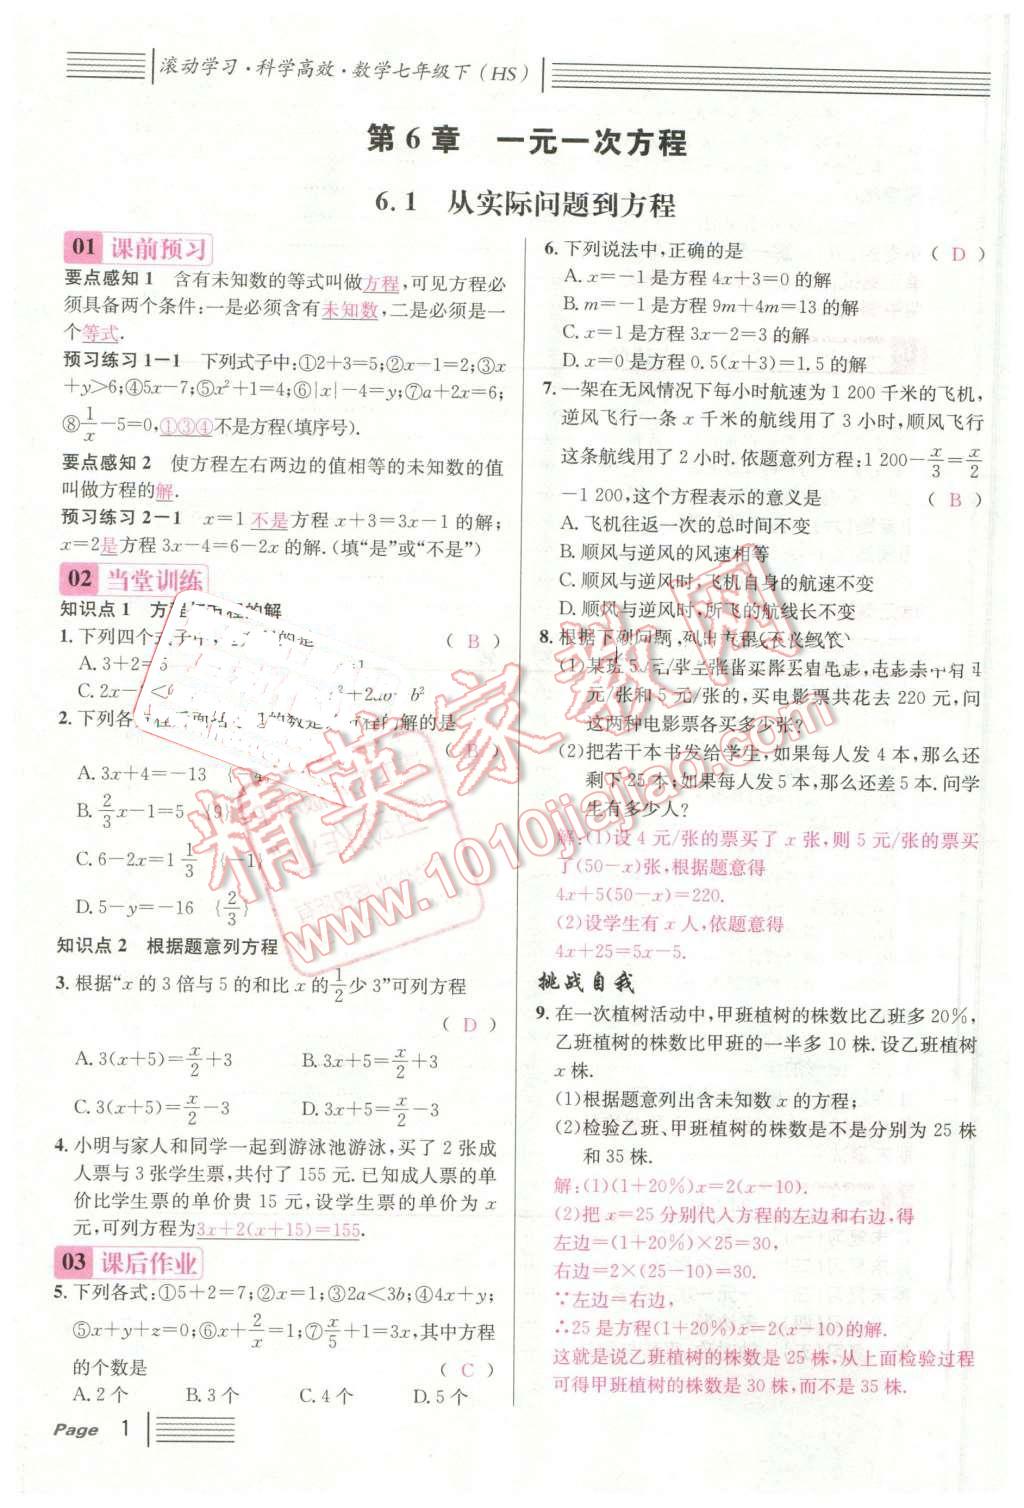 滚动学习·科学高效·数学七年级下(HS)
第6章 一元一次方程
6.1 从实际问题到方程
01 课前预习
要点感知1 含有未知数的等式叫做方程,可见方程必
须具备两个条件:一是必须含有未知数,二是必须是一
个等式.
预习练习1-1 下列式子中:①2+3=5;②x-1=2;③x
+y>6;④5x-7;⑤x²+1=4;⑥|x|-4=y;⑦a+2x=6;
⑧1/x-5=0,①③④不是方程(填序号).
要点感知2 使方程左右两边的值相等的未知数的值
叫做方程的解.
预习练习2-1 x=1 不是方程 x+3=3x-1 的解;
x=2是方程 3x-4=6-2x 的解.(填“是”或“不是”)
02 当堂训练
知识点1 方程与方程的解
1.下列四个式子中,是方程的是 (B)
A.3+2=5
C.2x-1<0 b²
2.下列各方程后面括号里的数是该方程的解的是
(B)
A.3x+4=-13
B.2/3x-1=5 {9}
C.6-2x=1 1/3 {-1}
D.5-y=-16 {2/3}
知识点2 根据题意列方程
3.根据“x的3倍与5的和比x的1/2少3”可列方程
(D)
A.3(x+5)=x/2+3 B.3x+5=x/2+3
C.3(x+5)=x/2-3 D.3x+5=x/2-3
4.小明与家人和同学一起到游泳池游泳,买了2张成
人票与3张学生票,共付了155元.已知成人票的单
价比学生票的单价贵15元,设学生票的单价为x
元,可列方程为3x+2(x+15)=155.
03 课后作业
5.下列各式:①5+2=7;②x=1;③2a<3b;④4x+y;
⑤x+y+z=0;⑥x+2/x=1;⑦x/5+1=3x,其中方程
的个数是 (C)
A.2个 B.3个 C.4个 D.5个
Page 1
6.下列说法中,正确的是 (D)
A.x=-1是方程4x+3=0的解
B.m=-1是方程9m+4m=13的解
C.x=1是方程3x-2=3的解
D.x=0是方程0.5(x+3)=1.5的解
7.一架在无风情况下每小时航速为1 200千米的飞机,
逆风飞行一条x千米的航线用了3小时,顺风飞行
这条航线用了2小时.依题意列方程:1 200-x/3=x/2
-1 200,这个方程表示的意义是 (B)
A.飞机往返一次的总时间不变
B.顺风与逆风的风速相等
C.顺风与逆风时,飞机自身的航速不变
D.顺风与逆风时,所飞的航线长不变
8.根据下列问题,列出方程(不必解答)
(1)某班50
元/张和5元/张的,买电影票共花去220元,问
这两种电影票各买多少张?
(2)把若干本书发给学生,如果每人发4本,那么还
剩下25本;如果每人发5本,那么还差5本.问学
生有多少人?
解:(1)设4元/张的票买了x张,则5元/张的票买
了(50-x)张,根据题意得
4x+5(50-x)=220.
(2)设学生有x人,依题意得
4x+25=5x-5.
挑战自我
9.在一次植树活动中,甲班植树的株数比乙班多20%,
乙班植树的株数比甲班的一半多10株.设乙班植树
x株.
(1)根据题意列出含未知数x的方程;
(2)检验乙班、甲班植树的株数是不是分别为25株
和35株.
解:(1)(1+20%)x=2(x-10).
(2)把x=25分别代入方程的左边和右边,得
左边=(1+20%)×25=30,
右边=2×(25-10)=30.
∵左边=右边,
∴25是方程(1+20%)x=2(x-10)的解.
这就是说乙班植树的株数是25株,从上面检验过程
可得甲班植树的株数是30株,而不是35株.
精英家教网
www.1010jiajiao.com